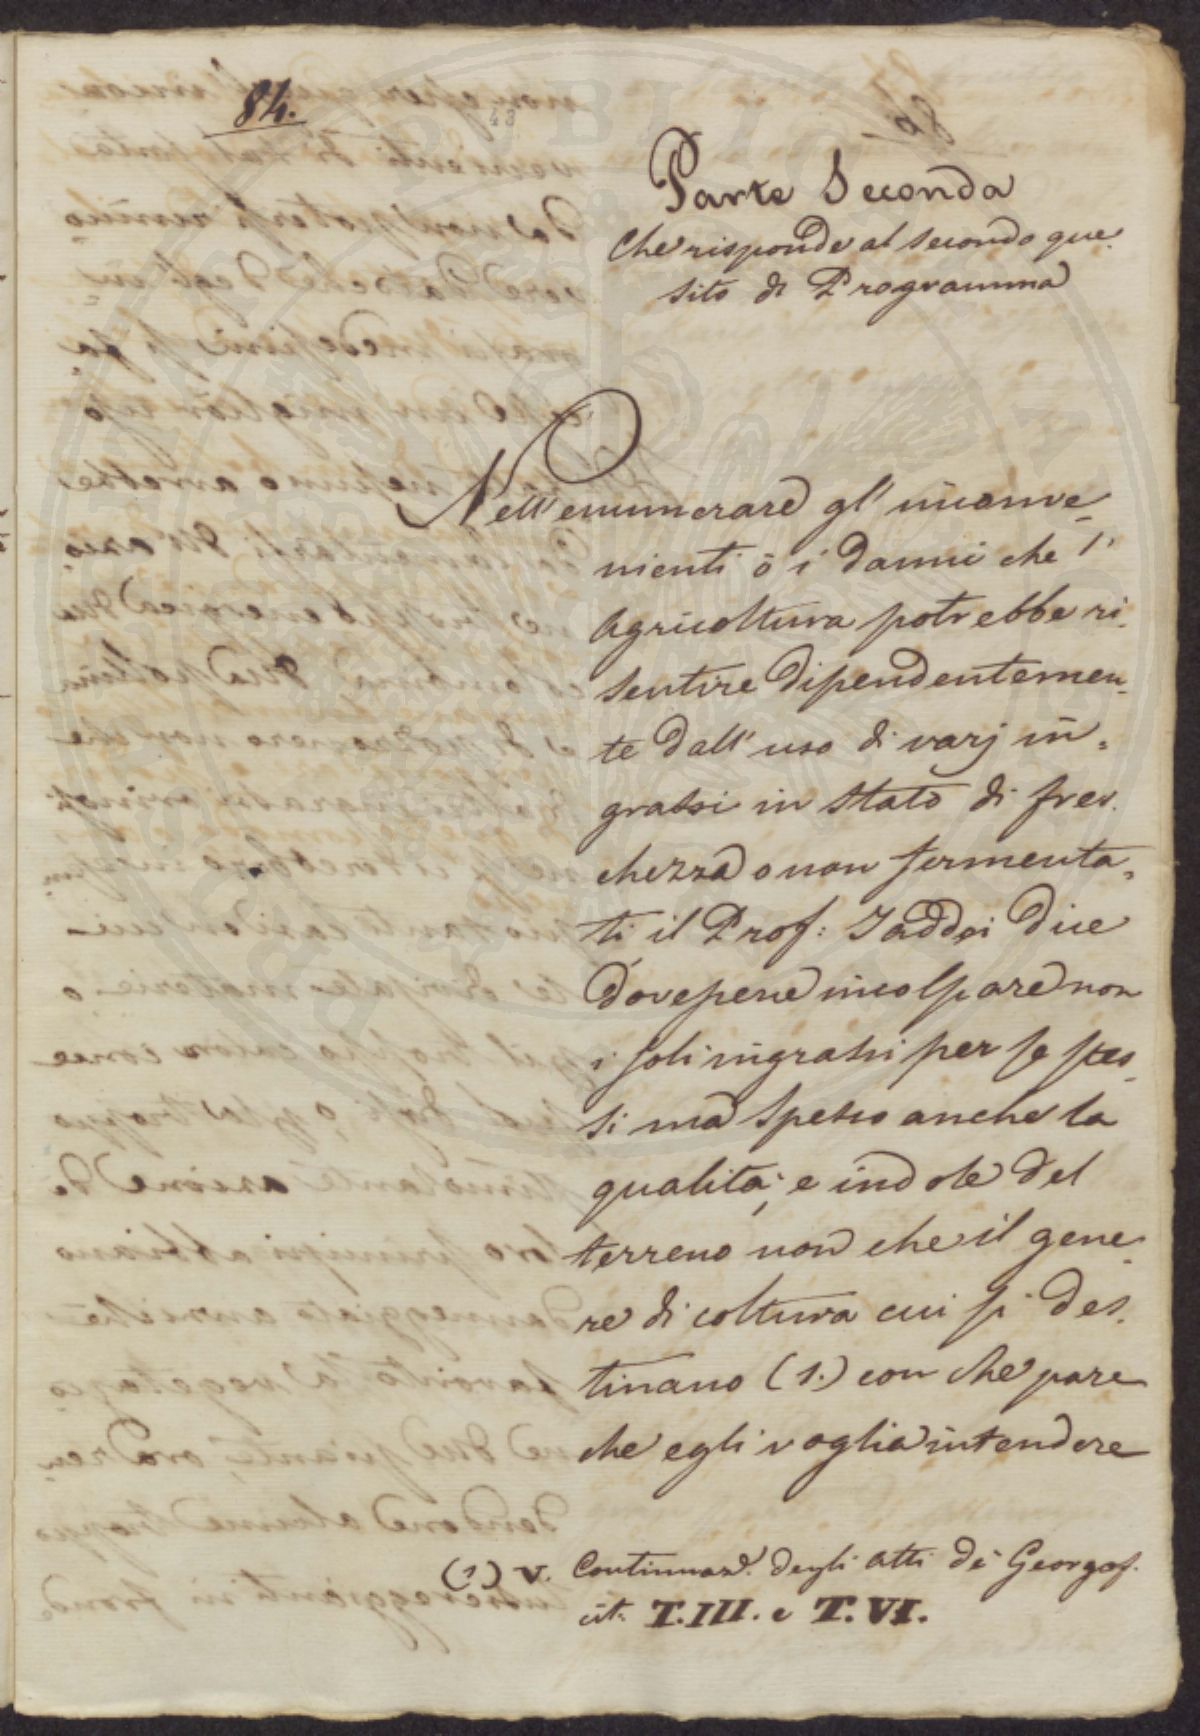 84.
43
Parte Seconda
Che risponde al secondo que=
sito di Programma
Nell'enumerare gl'inconve=
nienti ò i danni che l'
Agricoltura potrebbe ri=
sentire dipendentemen=
te dall'uso di varj in=
grassi in stato di fres=
chezza o non fermenta=
ti il Prof: Taddei dice
dovesene incolpare non
i soli ingrassi per se stes=
si ma spesso anche la
qualità, e indole del
terreno non che il gene=
re di coltura cui si des=
tinano (1.) con che pare
che egli voglia intendere
(1) v. Continuaz. degli Atti de' Georgof.
cit. T. III. e T. VI.